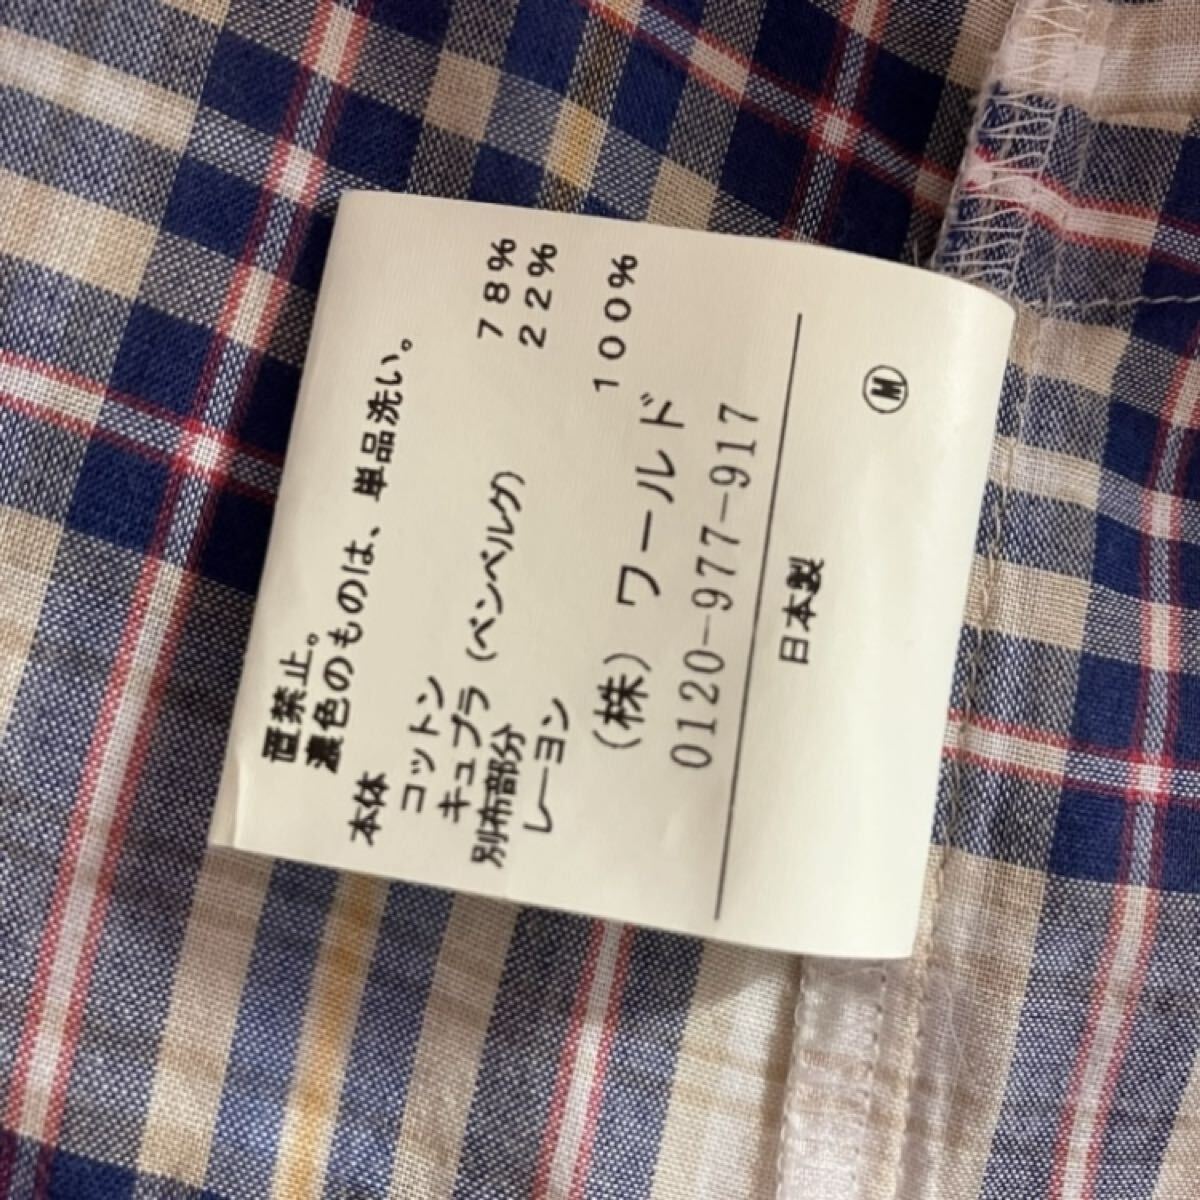 直禁止。
濃色のものは、単品洗い。
本体
コットン 78%
キュプラ(ベンベルグ) 22%
別布部分
レーヨン 100%
(株)ワールド
0120-977-917
日本製
M